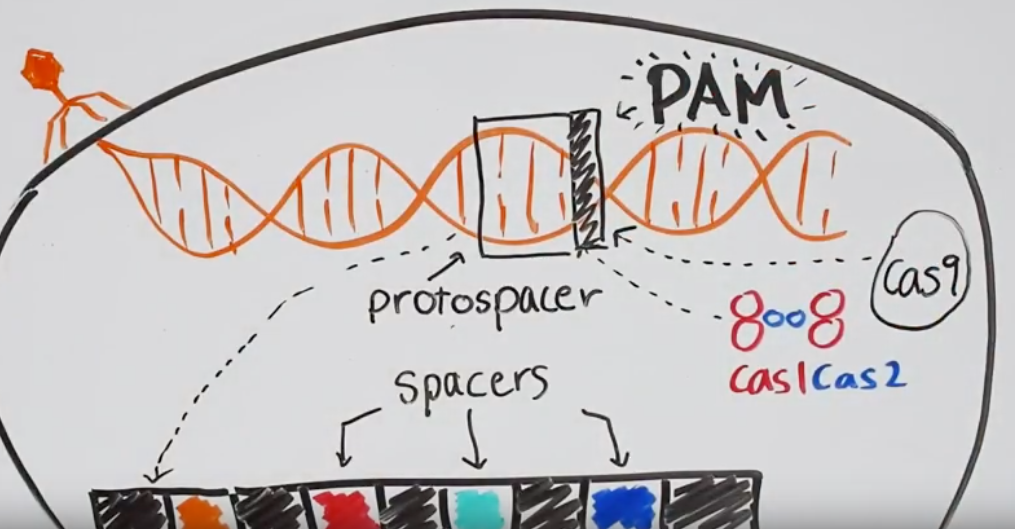 PAM
Cas9
protospacer
Cas1Cas2
spacers